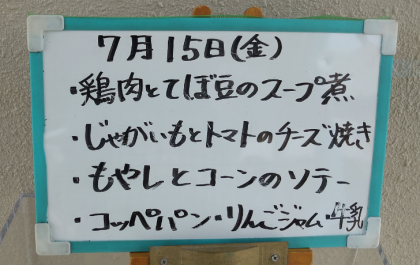 7月15日(金)
・鶏肉とてぼ豆のスープ煮
・じゃがいもとトマトのチーズ焼き
・もやしとコーンのソテー
・コッペパン・りんごジャム・牛乳